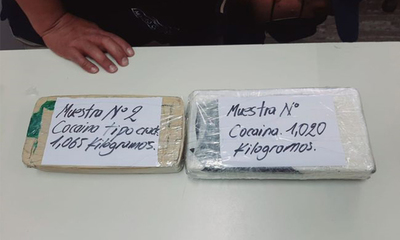 Muestra Nº 2
Cocaina tipo crack.
1,065 Kilogramos.
Muestra Nº
Cocaina. 1,020
Kilogramos.